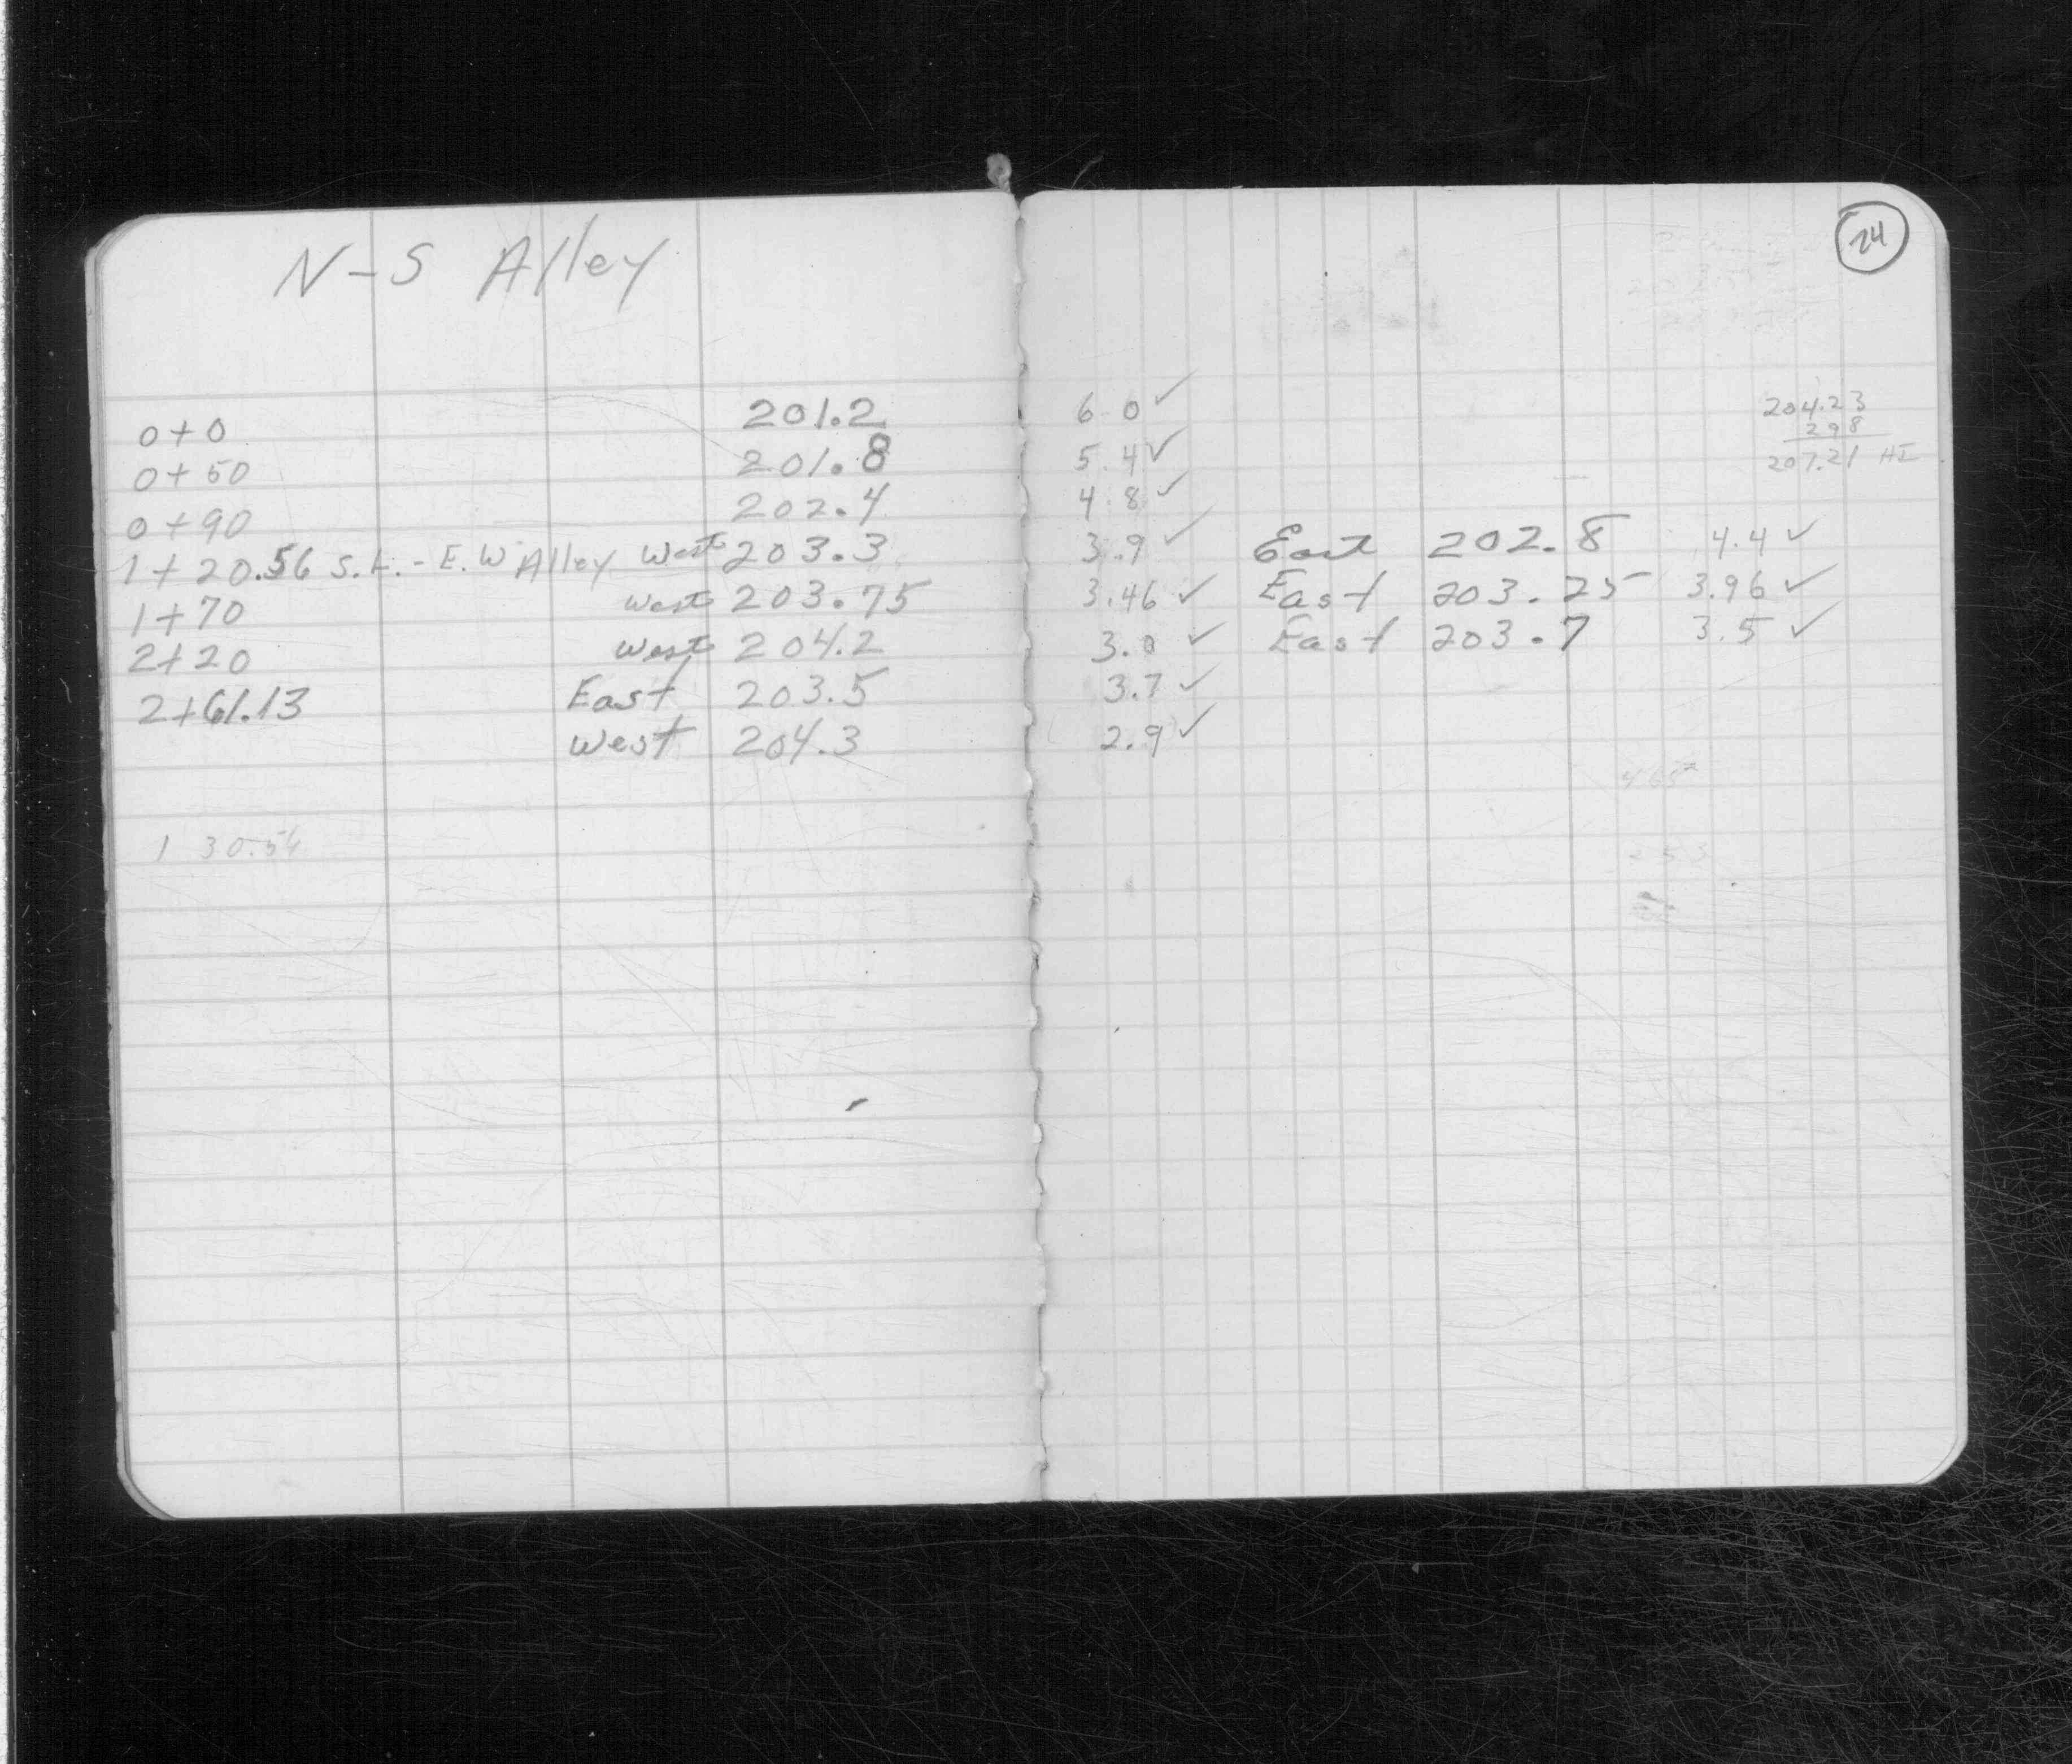 N-S Alley
24
0+0 201.2 6.0 ✓ 204.23
298
0+50 201.8 5.4 ✓ 207.21 HI
0+90 202.4 4.8 ✓
1+20.56 S.L.-E.W Alley West 203.3 3.9 ✓ East 202.8 4.4 ✓
1+70 West 203.75 3.46 ✓ East 203.25 3.96 ✓
2+20 West 204.2 3.0 ✓ East 203.7 3.5 ✓
2+61.13 East 203.5 3.7 ✓
West 204.3 2.9 ✓
1 30.56